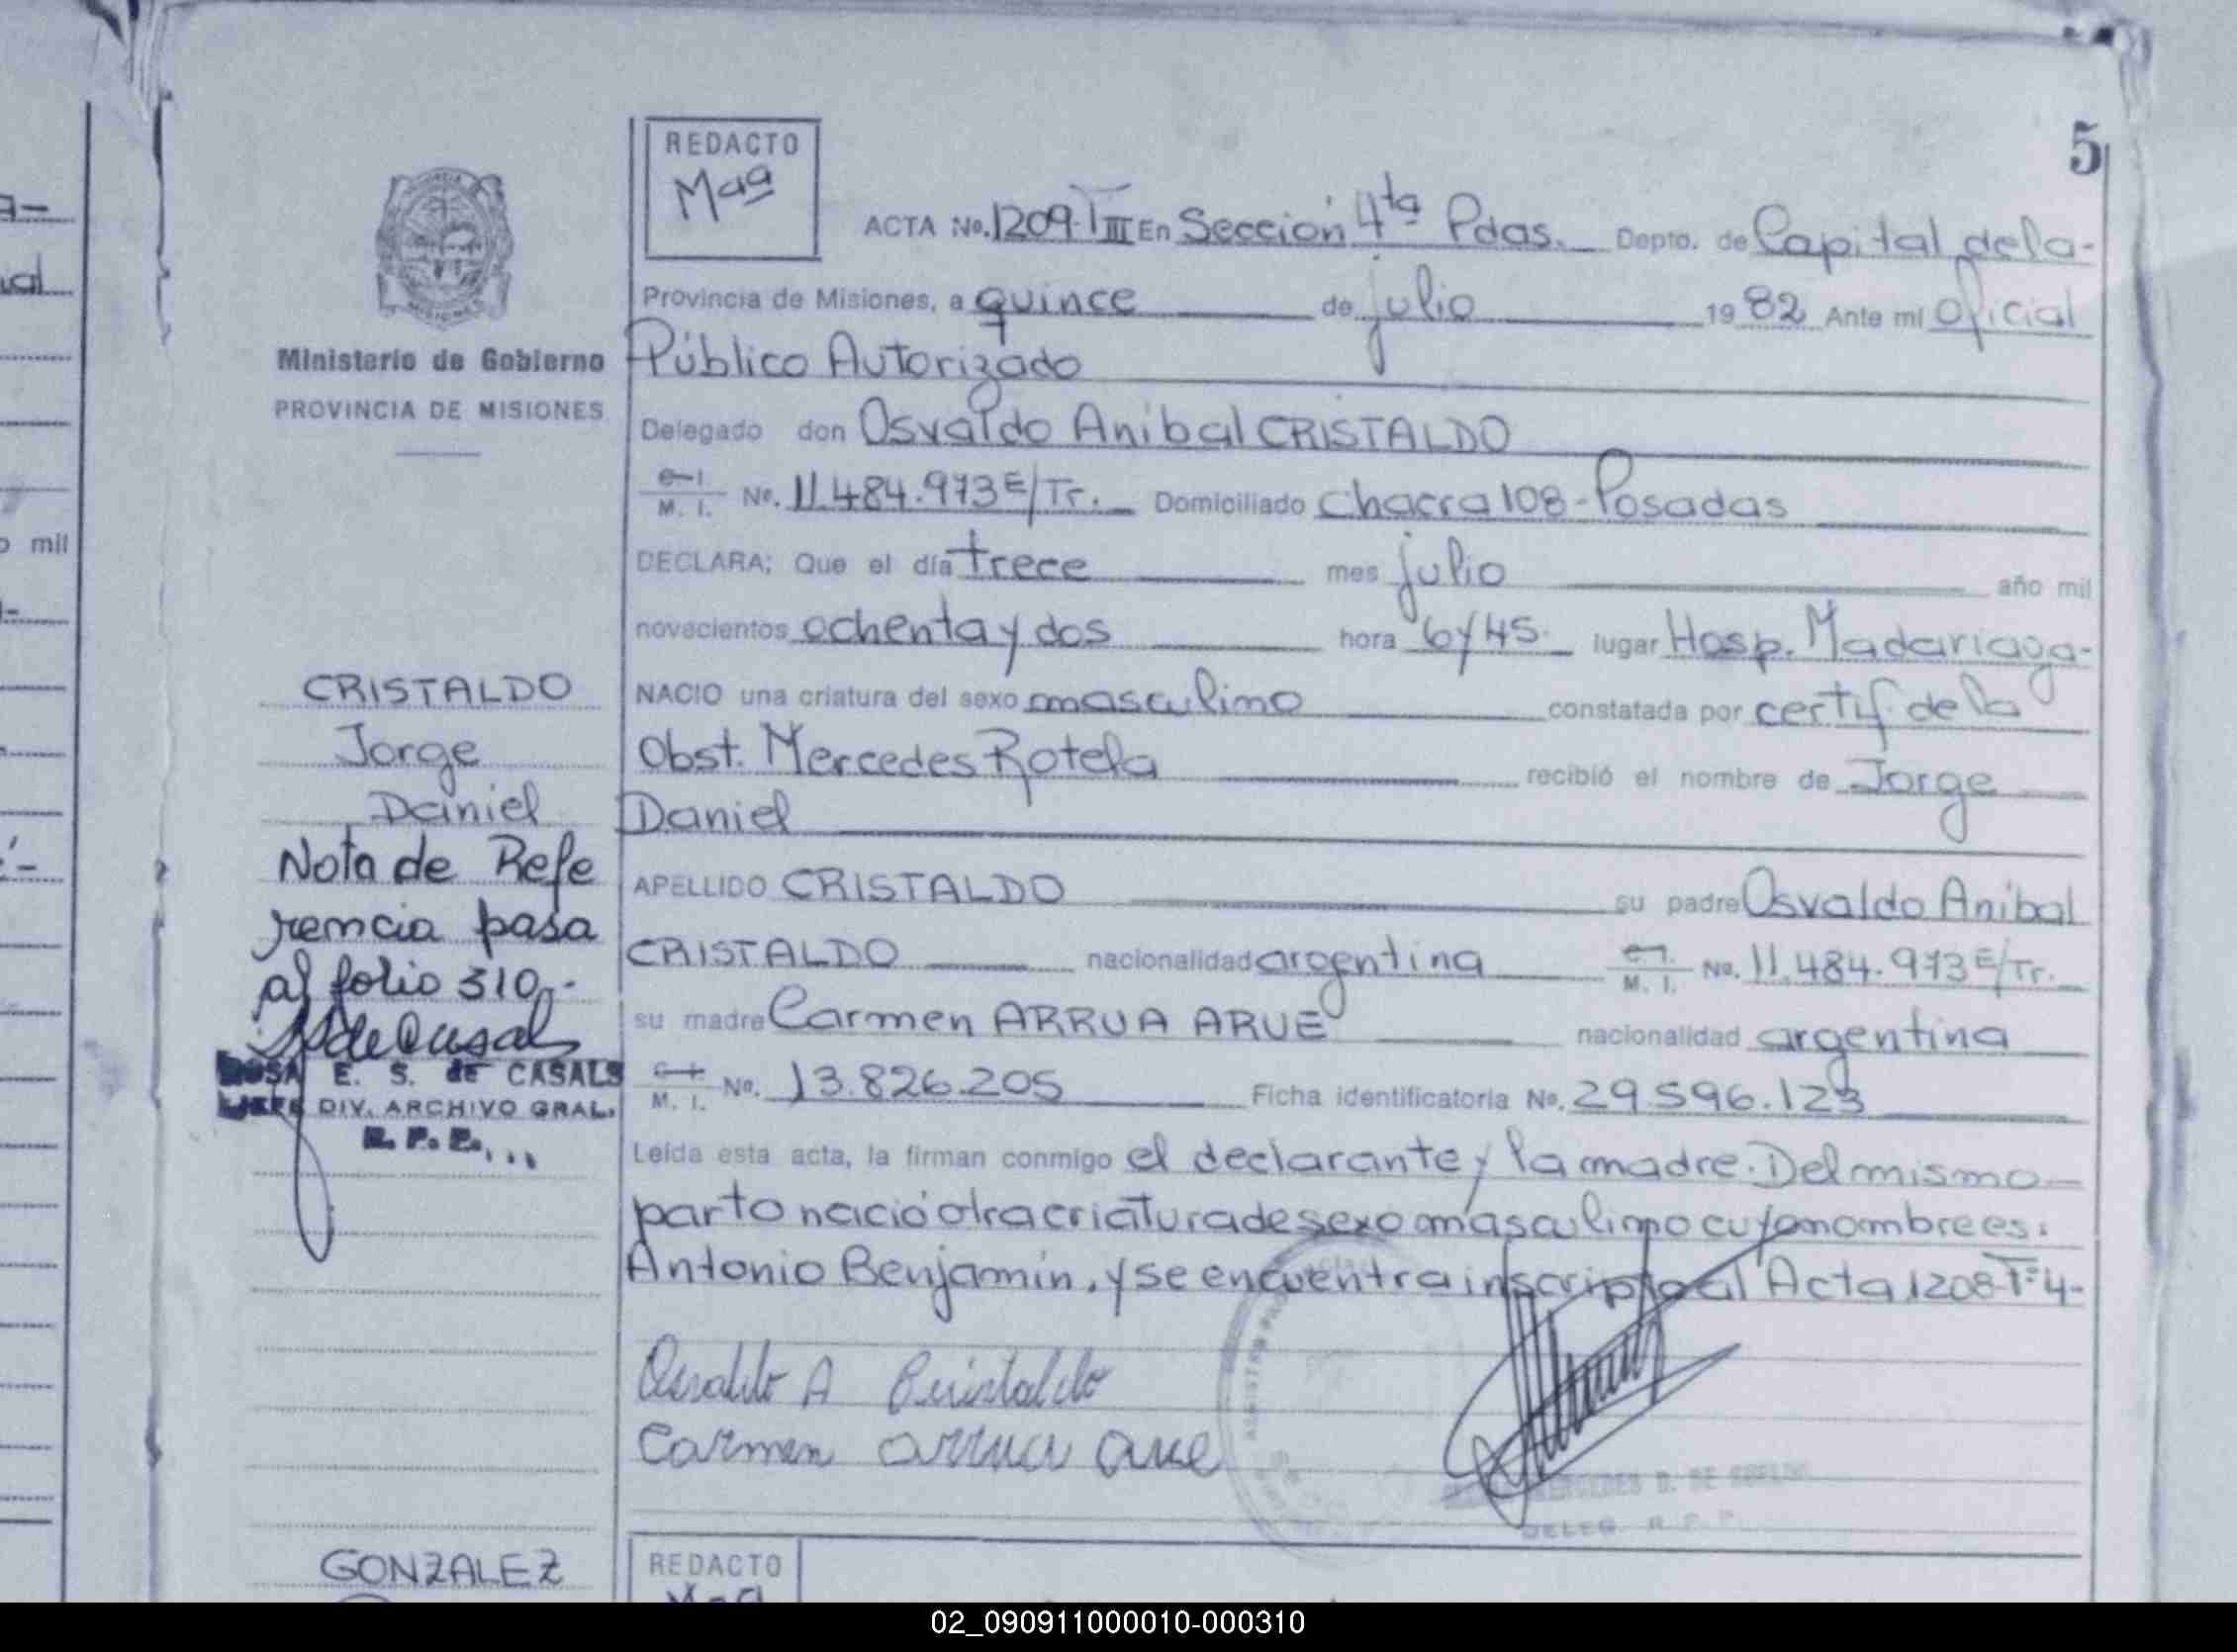 5
REDACTO
Maª
ACTA No. 1209-TIII En Sección 4ta Pdas. Depto. de Capital de la-
Provincia de Misiones, a quince de julio 1982 Ante mi Oficial
Público Autorizado
Delegado don Osvaldo Anibal CRISTALDO
M. I. No. 11.484.973 E/Tr. Domiciliado Chacra 108-Posadas
DECLARA; Que el día trece mes julio año mil
novecientos ochenta y dos hora 6 y 45 lugar Hosp. Madariaga-
NACIO una criatura del sexo masculino constatada por certif de la
Obst. Mercedes Rotela recibió el nombre de Jorge
Daniel
APELLIDO CRISTALDO su padre Osvaldo Anibal
CRISTALDO nacionalidad argentina M. I. No. 11.484.973 E/Tr.
su madre Carmen ARRUA ARUE nacionalidad argentina
M. I. No. 13.826.205 Ficha identificatoria No. 29.596.123
Leída esta acta, la firman conmigo el declarante y la madre. Del mismo
parto nació otra criatura de sexo masculino cuyo nombre es:
Antonio Benjamín, y se encuentra inscripto al Acta 1208-Tº4-
Osvaldo A Cristaldo
Carmen arrua arue
DELEG. R. P. P.
Ministerio de Gobierno
PROVINCIA DE MISIONES
CRISTALDO
Jorge
Daniel
Nota de Refe
rencia pasa
al folio 310.-
ROSA E. S. de CASALS
JEFE DIV. ARCHIVO GRAL.
R. P. P.
GONZALEZ
REDACTO
o mil
02_090911000010-000310